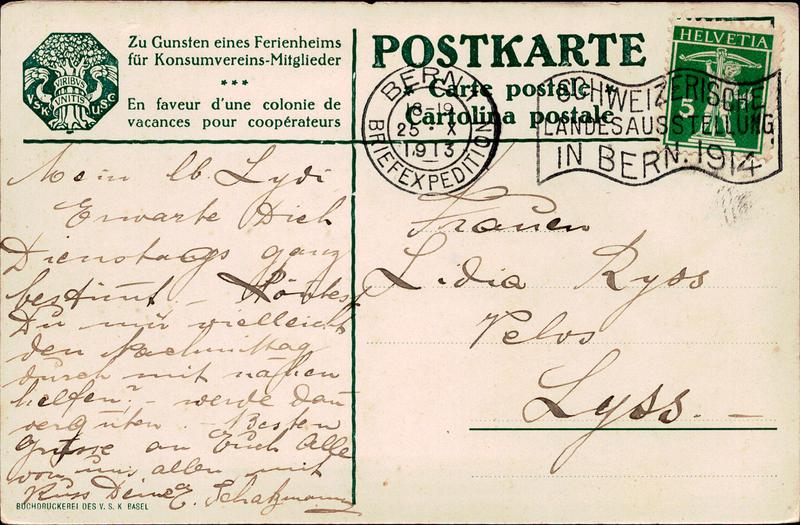 Zu Gunsten eines Ferienheims
für Konsumvereins-Mitglieder
***
En faveur d'une colonie de
vacances pour coopérateurs
VIRIBUS
UNITIS
V.S.K.
U.S.C.
POSTKARTE
* Carte postale *
Cartolina postale
BERN 1
18-19
25. X
1913
BRIEFEXPEDITION
SCHWEIZERISCHE
LANDESAUSSTELLUNG
IN BERN. 1914
HELVETIA
5
Mein lb. Lydi
Erwarte Dich
Dienstags ganz
bestimmt. - Könntest
Du mir vielleicht
den Nachmittag
durch mit nähen
helfen? - werde dann
vergüten. - Besten
Grüsse an Euch Alle
von uns allen mit
Kuss Deine E. Schatzmann
Frauen
Lidia Ryss
Velos
Lyss. -
BUCHDRUCKEREI DES V. S. K BASEL